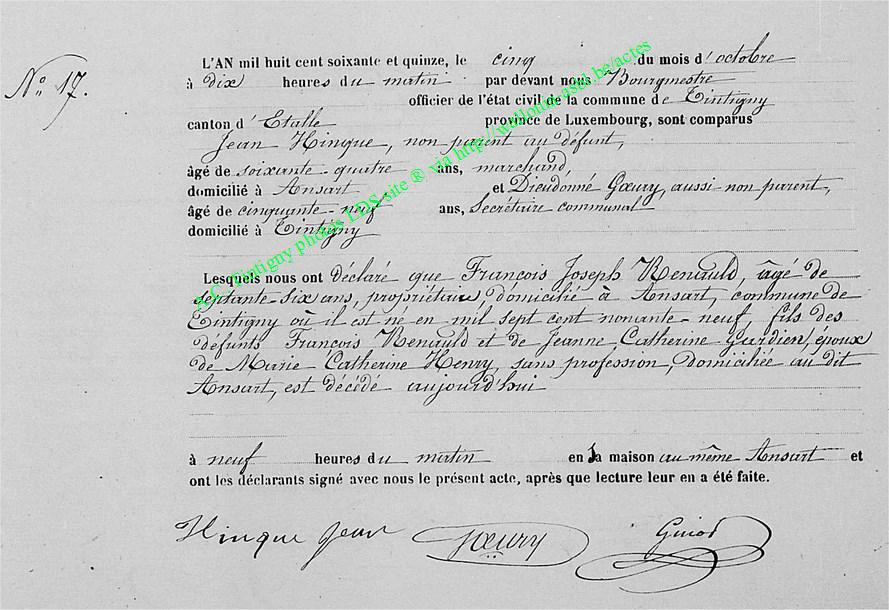 N° 17.
L'AN mil huit cent soixante et quinze, le cinq du mois d'octobre
à dix heures du matin par devant nous Bourgmestre
officier de l'état civil de la commune de Tintigny
canton d'Etalle province de Luxembourg, sont comparus
Jean Hinque, non parent au défunt,
âgé de soixante-quatre ans, marchand,
domicilié à Ansart et Dieudonné Goeury, aussi non parent,
âgé de cinquante-neuf ans, Secrétaire communal
domicilié à Tintigny
Lesquels nous ont déclaré que François Joseph Renauld, âgé de
septante-six ans, propriétaire, domicilié à Ansart, commune de
Tintigny où il est né en mil sept cent nonante-neuf fils des
défunts François Renauld et de Jeanne Catherine Gardien, époux
de Marie Catherine Henry, sans profession, domiciliée au dit
Ansart, est décédé aujourd'hui
à neuf heures du matin en sa maison au même Ansart et
ont les déclarants signé avec nous le présent acte, après que lecture leur en a été faite.
Hinque Jean Goeury
A.C. Tintigny photos LDS site ® via http://wallonia-asbl.be/actes